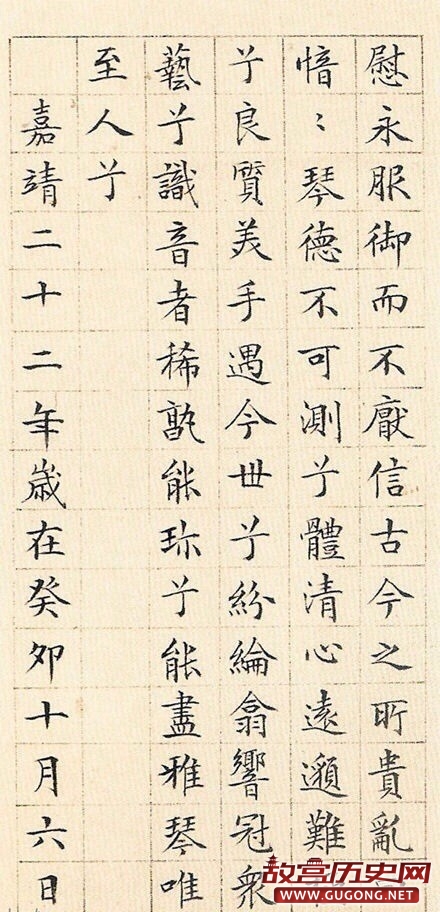 慰永服御而不厭信古今之所貴亂
愔〻琴德不可測兮體清心遠邈難
兮良質美手遇今世兮紛綸翕響冠衆
藝兮識音者稀孰能珎兮能盡雅琴唯
至人兮
嘉靖二十二年歲在癸卯十月六日
故宫历史网
WWW.GUGONG.NET